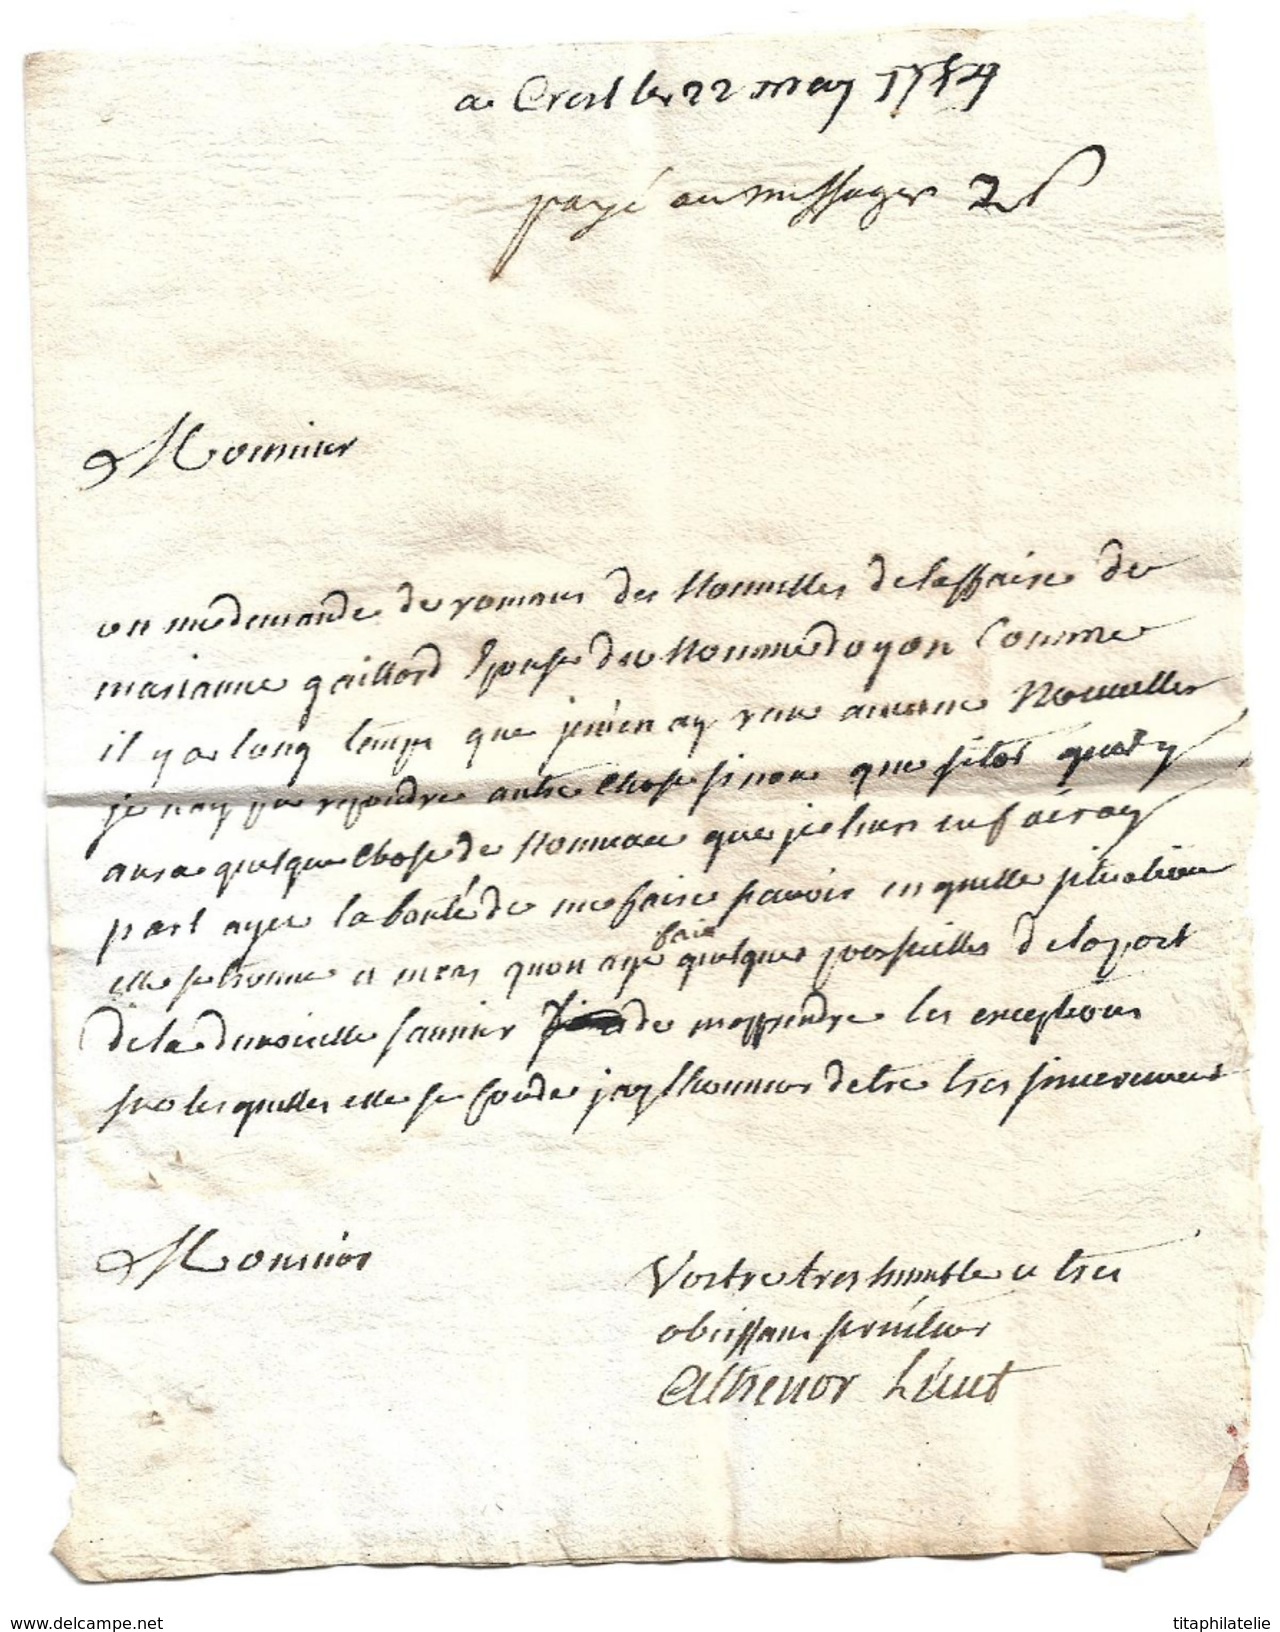 a Crest le 22 may 1754
payé au messager 2 s
Monsieur
on me demande de romans des Nouvelles de laffaire de
marianne gaillard Epouse du Nomme doyon Comme
il y a long temps que je nen ay reau aucune Nouvelles
je nay pu repondre autre Chose sinon que sitot quoy
aura quelque Chose de Nouveau que je leurs en fairay
part ayes la bonté de me faire savoir en quelle situation
elle se trouve et mes quon aye fait quelques poursuittes de la part
de la demoiselle saunier de mapprendre les exceptions
sur lesquelles elle se fonde jay lhonneur detre tres sincerement
Monsieur
Vostre tres humble et tres
obeissant serviteur
Athenor Lieut
www.delcampe.net
titaphilatelie